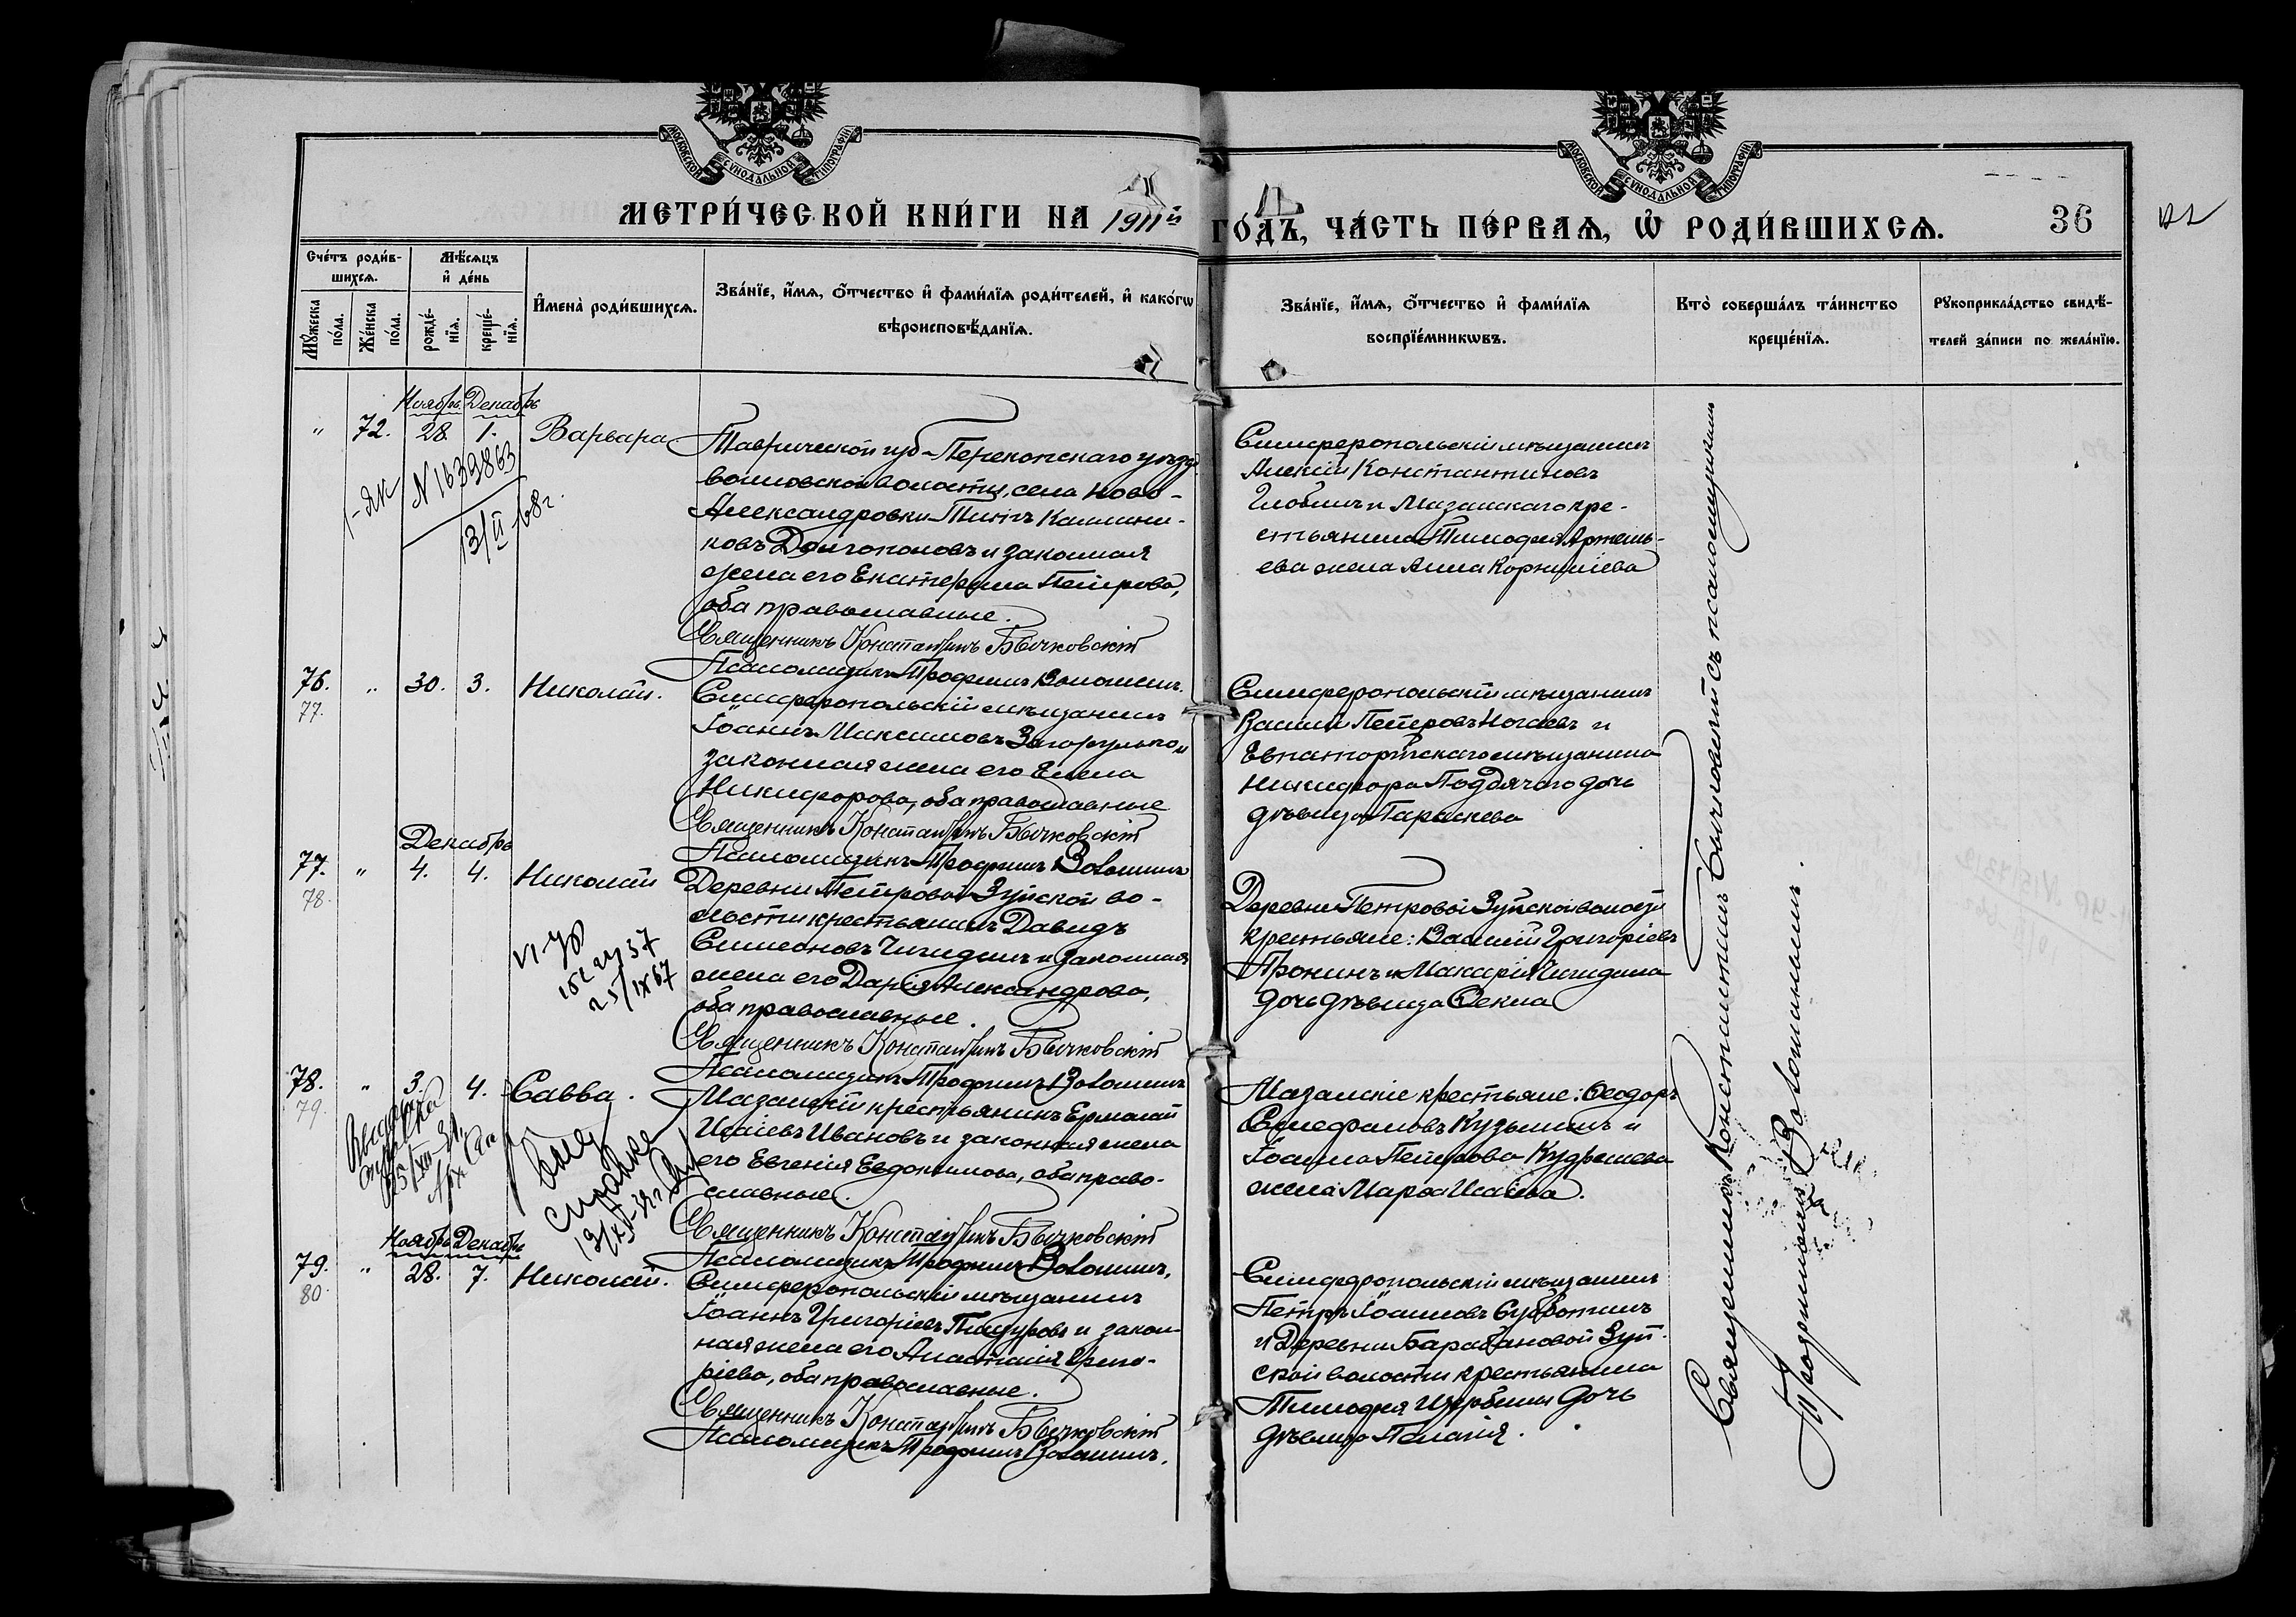 МОСКОВСКОЙ СУНОДАЛЬНОЙ ТИПОГРАФІИ
МОСКОВСКОЙ СУНОДАЛЬНОЙ ТИПОГРАФІИ
МЕТРИ́ЧЕСКОЙ КНИ́ГИ НА 1911й ГО́ДЪ, ЧА́СТЬ ПЕ́РВАѦ, Ѡ҆ РОДИ́ВШИХСѦ. 36
Сче́тъ роди́в-
шихсѧ.
Мꙋ́жеска
по́ла.
Же́нска
по́ла.
Мѣ́сѧцъ
и҆ де́нь
рожде́-
нїѧ.
креще́-
нїѧ.
И҆мена̀ роди́вшихсѧ.
Зва́нїе, и҆́мѧ, ѻ҆́тчество и҆ фами́лїѧ роди́телей, и҆ како́гѡ
вѣроисповѣ́данїѧ.
Зва́нїе, и҆́мѧ, ѻ҆́тчество и҆ фами́лїѧ
воспрїе́мникѡвъ.
Кто̀ соверша́лъ та́инство
креще́нїѧ.
Рꙋкоприкла́дство свидѣ́-
телей за́писи по жела́нїю.
Ноябрь Декабрь
" 72. 28. 1. Варвара
N 1639863
13/II-68г.
Таврической губ. Перекопскаго уѣзда
волости, села Ново-
Александровки Титъ Калинни-
ковъ Долгополовъ и законная
жена его Екатерина Петрова,
оба православные.
Священникъ Константинъ Бычковскій
Псаломщикъ Трофимъ Волошинъ.
Симферопольскій мѣщанинъ
Алексій Константиновъ
и Мазанскаго кре-
стьянина Тимофея Артемь-
ева жена Анна Корниліева
76. " 30. 3. Николай.
77.
Симферопольскій мѣщанинъ
Іоаннъ Максимовъ Загорулько и
законная жена его Елена
Никифорова, оба православные
Священникъ Константинъ Бычковскій
Псаломщикъ Трофимъ Волошинъ
Симферопольскій мѣщанинъ
Василій Петровъ Ногаевъ и
Евпаторійскаго мѣщанина
Никифора Поддячаго дочь
дѣвица Параскева
Декабрь
77. " 4. 4. Николай
78.
25/IX 67
Деревни Петровой Зуйской во-
лости крестьянинъ Давидъ
Симеоновъ Чигидинъ и законная
жена его Дарія Александрова,
оба православные.
Священникъ Константинъ Бычковскій
Псаломщикъ Трофимъ Волошинъ
Деревни Петровой Зуйской волости
крестьяне: Василій Григоріевъ
Пронинъ и Макарія Чигидина
дочь дѣвица Ѳекла
78. " 3. 4. Савва.
79.
справка
Мазанскій крестьянинъ Ермолай
Исаіевъ Ивановъ и законная жена
его Евгенія Евдокимова, оба право-
славные.
Священникъ Константинъ Бычковскій
Псаломщикъ Трофимъ Волошинъ.
Мазанскіе крестьяне: Ѳеодоръ
Стефановъ Кузьминъ и
Іоанна Петрова Кудряшева
жена Марѳа Исаіева.
Ноябрь Декабрь
79. " 28. 7. Николай.
80.
Симферопольскій мѣщанинъ
Іоаннъ Григоріевъ и закон-
ная жена его Анастасія Григо-
ріева, оба православные.
Священникъ Константинъ Бычковскій
Псаломщикъ Трофимъ Волошинъ.
Симферопольскій мѣщанинъ
Петръ Іоанновъ Субботинъ
и Деревни Барабановой Зуй-
ской волости крестьянина
Тимофея Щербины дочь
дѣвица Пелагія.
Священникъ Константинъ Бычковскій съ псаломщикомъ
Трофимомъ Волошинымъ.